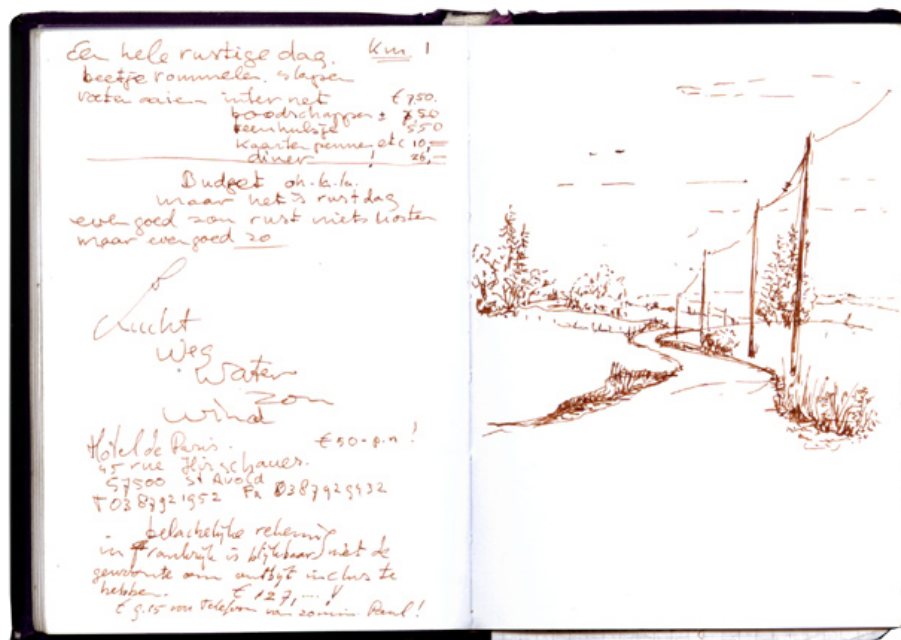 Een hele rustige dag. Km 1
beetje rommelen. slapen
internet € 7,50.
boodschappen ± 7,50
teenhulsje 5,50
Kaarten pennen etc 10,=
diner ! 26,=
Budget oh.la.la.
maar het is rustdag
even goed zou rust niets kosten
maar even goed zo
Lucht
weg
water
zon
wind
Hôtel de Paris. € 50 - p.n !
45 rue Hirschauer.
57500 St Avold
T 0387921952 Fx 0387929432
belachelijke rekening
in Frankrijk is blijkbaar niet de
gewoonte om ontbijt inclus te
hebben. € 127,-- !
€ 9.15 voor telefoon van Paul!